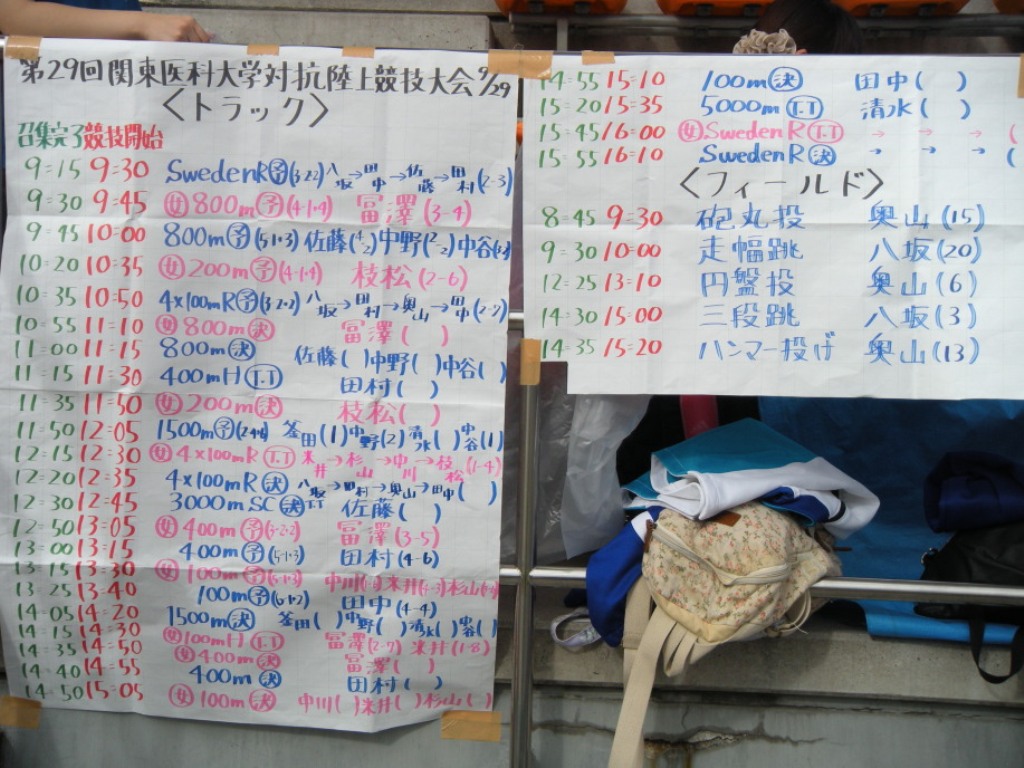 第29回関東医科大学対抗陸上競技大会 9/29
〈トラック〉
召集完了 競技開始
9:15 9:30 SwedenR予(3-2-2) 八坂→田中→佐藤→田村(2-3)
9:30 9:45 女800m予(4-1-4) 冨澤(3-4)
9:45 10:00 800m予(5-1-3) 佐藤 中野 中谷
10:20 10:35 女200m予(4-1-4) 枝松(2-6)
10:35 10:50 4×100mR予(3-2-2) 八坂→田村→奥山→田中(2-7)
10:55 11:10 女800m決 冨澤( )
11:00 11:15 800m決 佐藤( )中野( )中谷( )
11:15 11:30 400mH T.T 田村( )
11:35 11:50 女200m決 枝松( )
11:50 12:05 1500m予 釜田(1)中野(2)清水( )中谷(1)
12:15 12:30 女4×100mR T.T 米井→杉山→中川→枝松(1-4)
12:20 12:35 4×100mR決 八坂→田村→奥山→田中( )
12:30 12:45 3000mSC決 TT 佐藤( )
12:50 13:05 女400m予(3-2-2) 冨澤(3-5)
13:00 13:15 400m予(5-1-3) 田村(4-6)
13:15 13:30 女100m予 中川 米井 杉山
13:25 13:40 100m予(6-1-2) 田中(4-4)
14:05 14:20 1500m決 釜田( )中野( )清水( )中谷( )
14:15 14:30 女100mH T.T 冨澤(2-7) 米井(1-8)
14:35 14:50 女400m決 冨澤( )
14:40 14:55 400m決 田村( )
14:50 15:05 女100m決 中川( )米井( )杉山( )
14:55 15:10 100m決 田中( )
15:20 15:35 5000m T.T 清水( )
15:45 16:00 女SwedenR T.T → → → (
15:55 16:10 SwedenR決 → → → (
〈フィールド〉
8:45 9:30 砲丸投 奥山(15)
9:30 10:00 走幅跳 八坂(20)
12:25 13:10 円盤投 奥山(6)
14:30 15:00 三段跳 八坂(3)
14:35 15:20 ハンマー投げ 奥山(13)